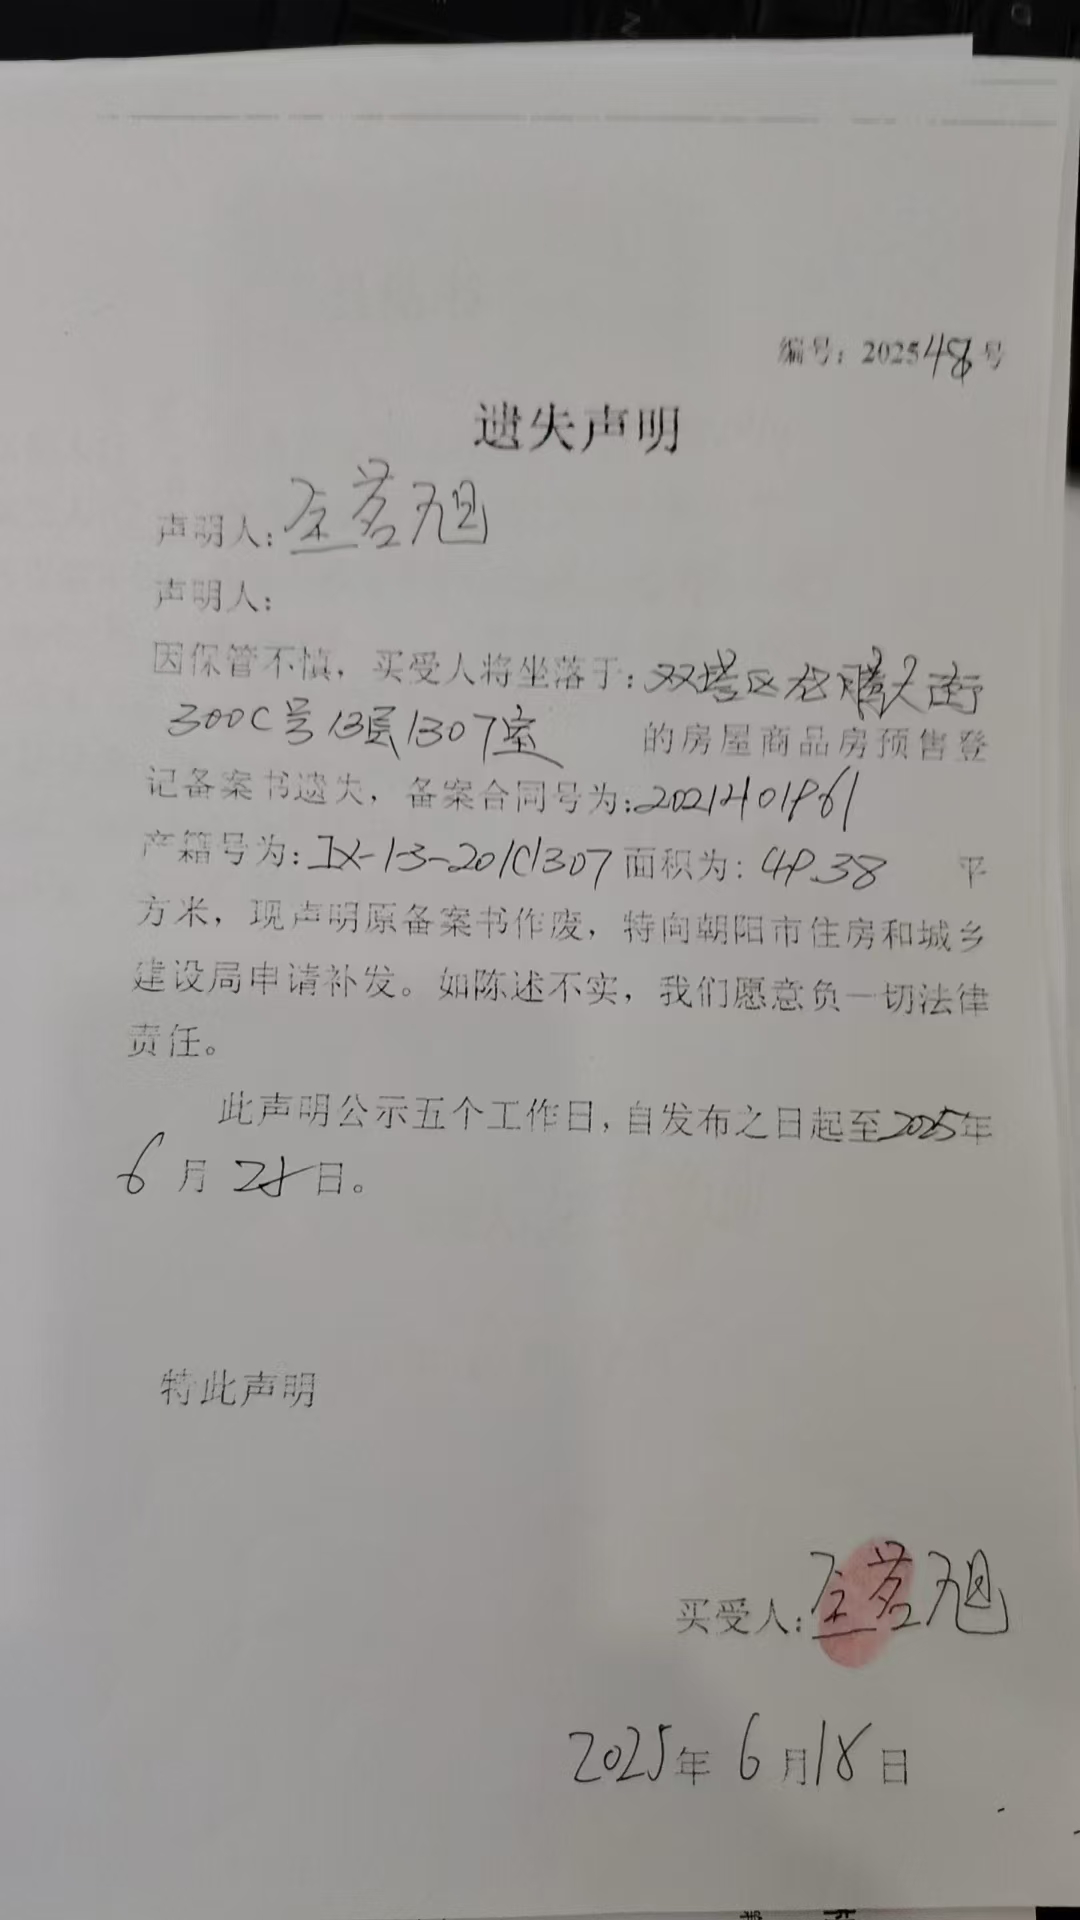 编号：202548号
遗失声明
声明人：茗旭
声明人：
因保管不慎，买受人将坐落于：双塔区龙腾大街
300C号13层1307室 的房屋商品房预售登
记备案书遗失，备案合同号为：
产籍号为：IX-1-3-201C1307面积为：49.38 平
方米，现声明原备案书作废，特向朝阳市住房和城乡
建设局申请补发。如陈述不实，我们愿意负一切法律
责任。
此声明公示五个工作日，自发布之日起至2025年
6月日。
特此声明
买受人：茗旭
2025年6月18日